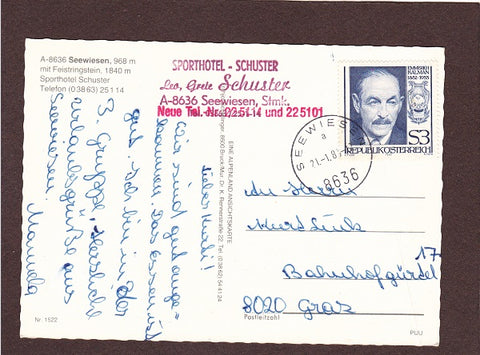 A-8636 Seewiesen, 968 m
mit Feistringstein, 1840 m
Sporthotel Schuster
Telefon (0 38 63) 25 1 14
SPORTHOTEL - SCHUSTER
Leo, Grete Schuster
A-8636 Seewiesen, Stmk.
Neue Tel.-Nr. 225114 und 225101
EMMERICH
KALMAN
1882-1953
S3
REPUBLIK ÖSTERREICH
SEEWIESEN
a
21.-1.83
8636
Lieber Kurti!
Wir sind gut ange-
kommen. Das Essen ist
gut. Ich bin in der
3. Gruppe. Herzliche
Urlaubsgrüße aus
Seewiesen.
Manuela
EINE ALPENLAND ANSICHTSKARTE
8600 Bruck/Mur, Dr. K. Rennerstraße 22, Tel. (0 38 62) 54 1 24
An Herrn
Kurt Link
Bahnhofgürtel 17
8020 Graz
Postleitzahl
Nr. 1522
PIJU